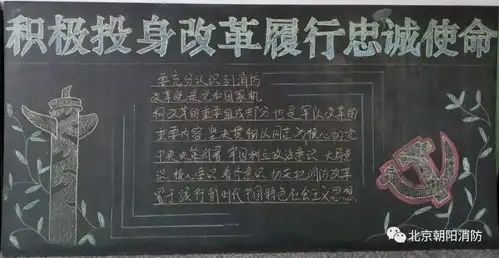 积极投身改革履行忠诚使命
要充分认识到消防
改革就是党和国家机
构改革的重要组成部分也是军队改革的
重要内容 坚决贯彻以同志为核心的党
中央决策部署 牢固树立政治意识 大局意
识 核心意识 看齐意识 切实把消防改革
置于践行新时代中国特色社会主义思想
北京朝阳消防